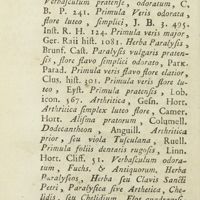 Verbasculum pratense, odoratum, C.
B. P. 241. Primula Veris odorata,
flore luteo, simplici, J. B. 3. 495.
Inst. R. H. 124. Primula veris major,
Ger. Raii hist. 1081. Herba Paralysis,
Brunf. Cast. Paralysis vulgaris praten-
sis, flore flavo simplici odorato, Park.
Parad. Primula veris flavo flore elatior,
Clus. hist. 301. Primula veris flore lu-
teo, Eyst. Primula pratensis, Lob.
icon. 567. Arthritica, Gesn. Hort.
Arthritica simplex luteo flore, Camer.
Hort. Alisma pratorum, Colum̃ell.
Dodecantheon, Anguill. Arthritica
prior, seu viola Tusculana, Ruell.
Primula foliis dentatis rugosis, Linn.
Hort. Cliff. 51. Verbasculum odora-
tum, Fuchs, & Antiquorum, Herba
Paralysios, Herba seu Clavis Sancti
Petri, Paralytica sive Arthetica, Che-